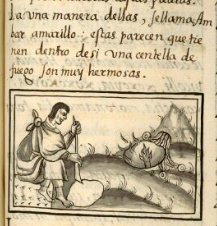 La una manera dellas, se llama, Am
bar amarillo: estas parecen que tie
nen dentro de si una centella de
fuego son muy hermosas.